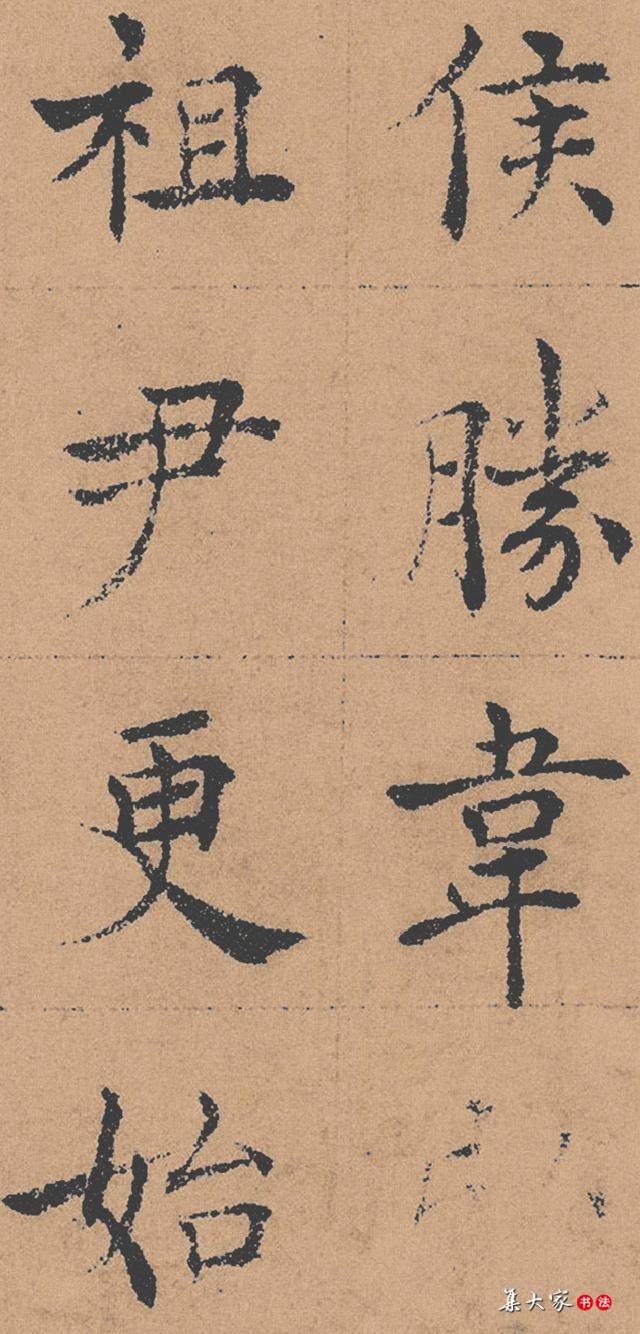 侯勝韋
祖尹更始
集大家书法